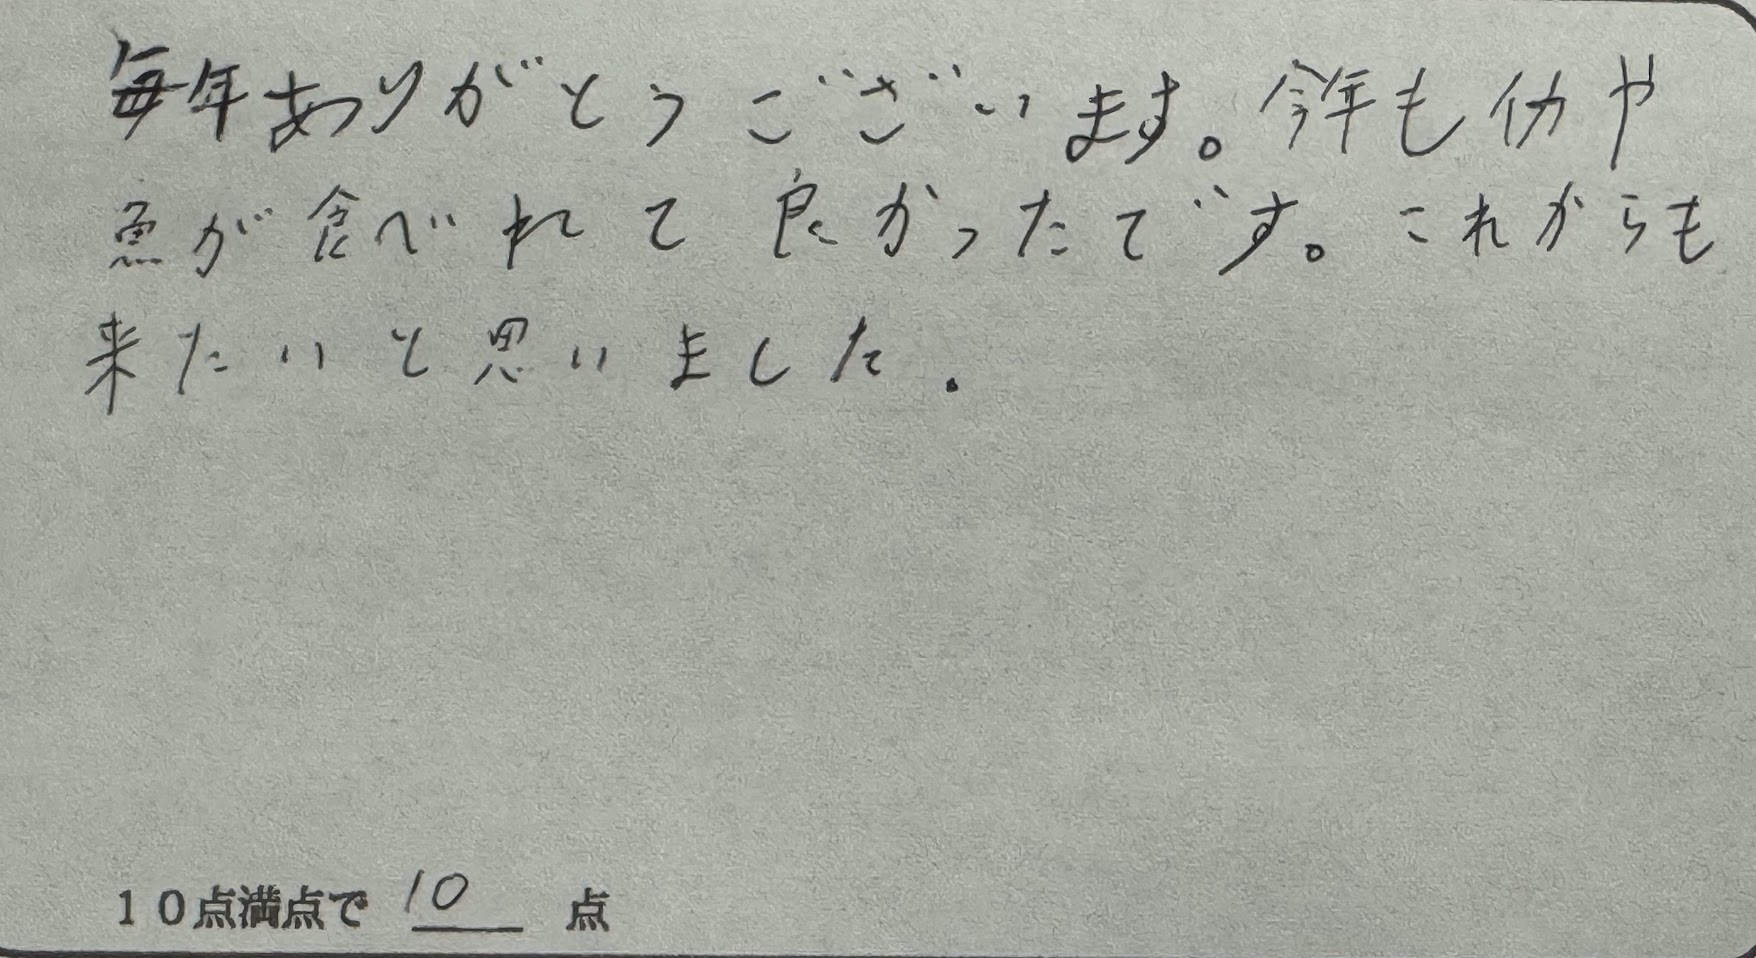 毎年ありがとうございます。今年もカや
魚が食べれて良かったです。これからも
来たいと思いました.
10点満点で 10 点